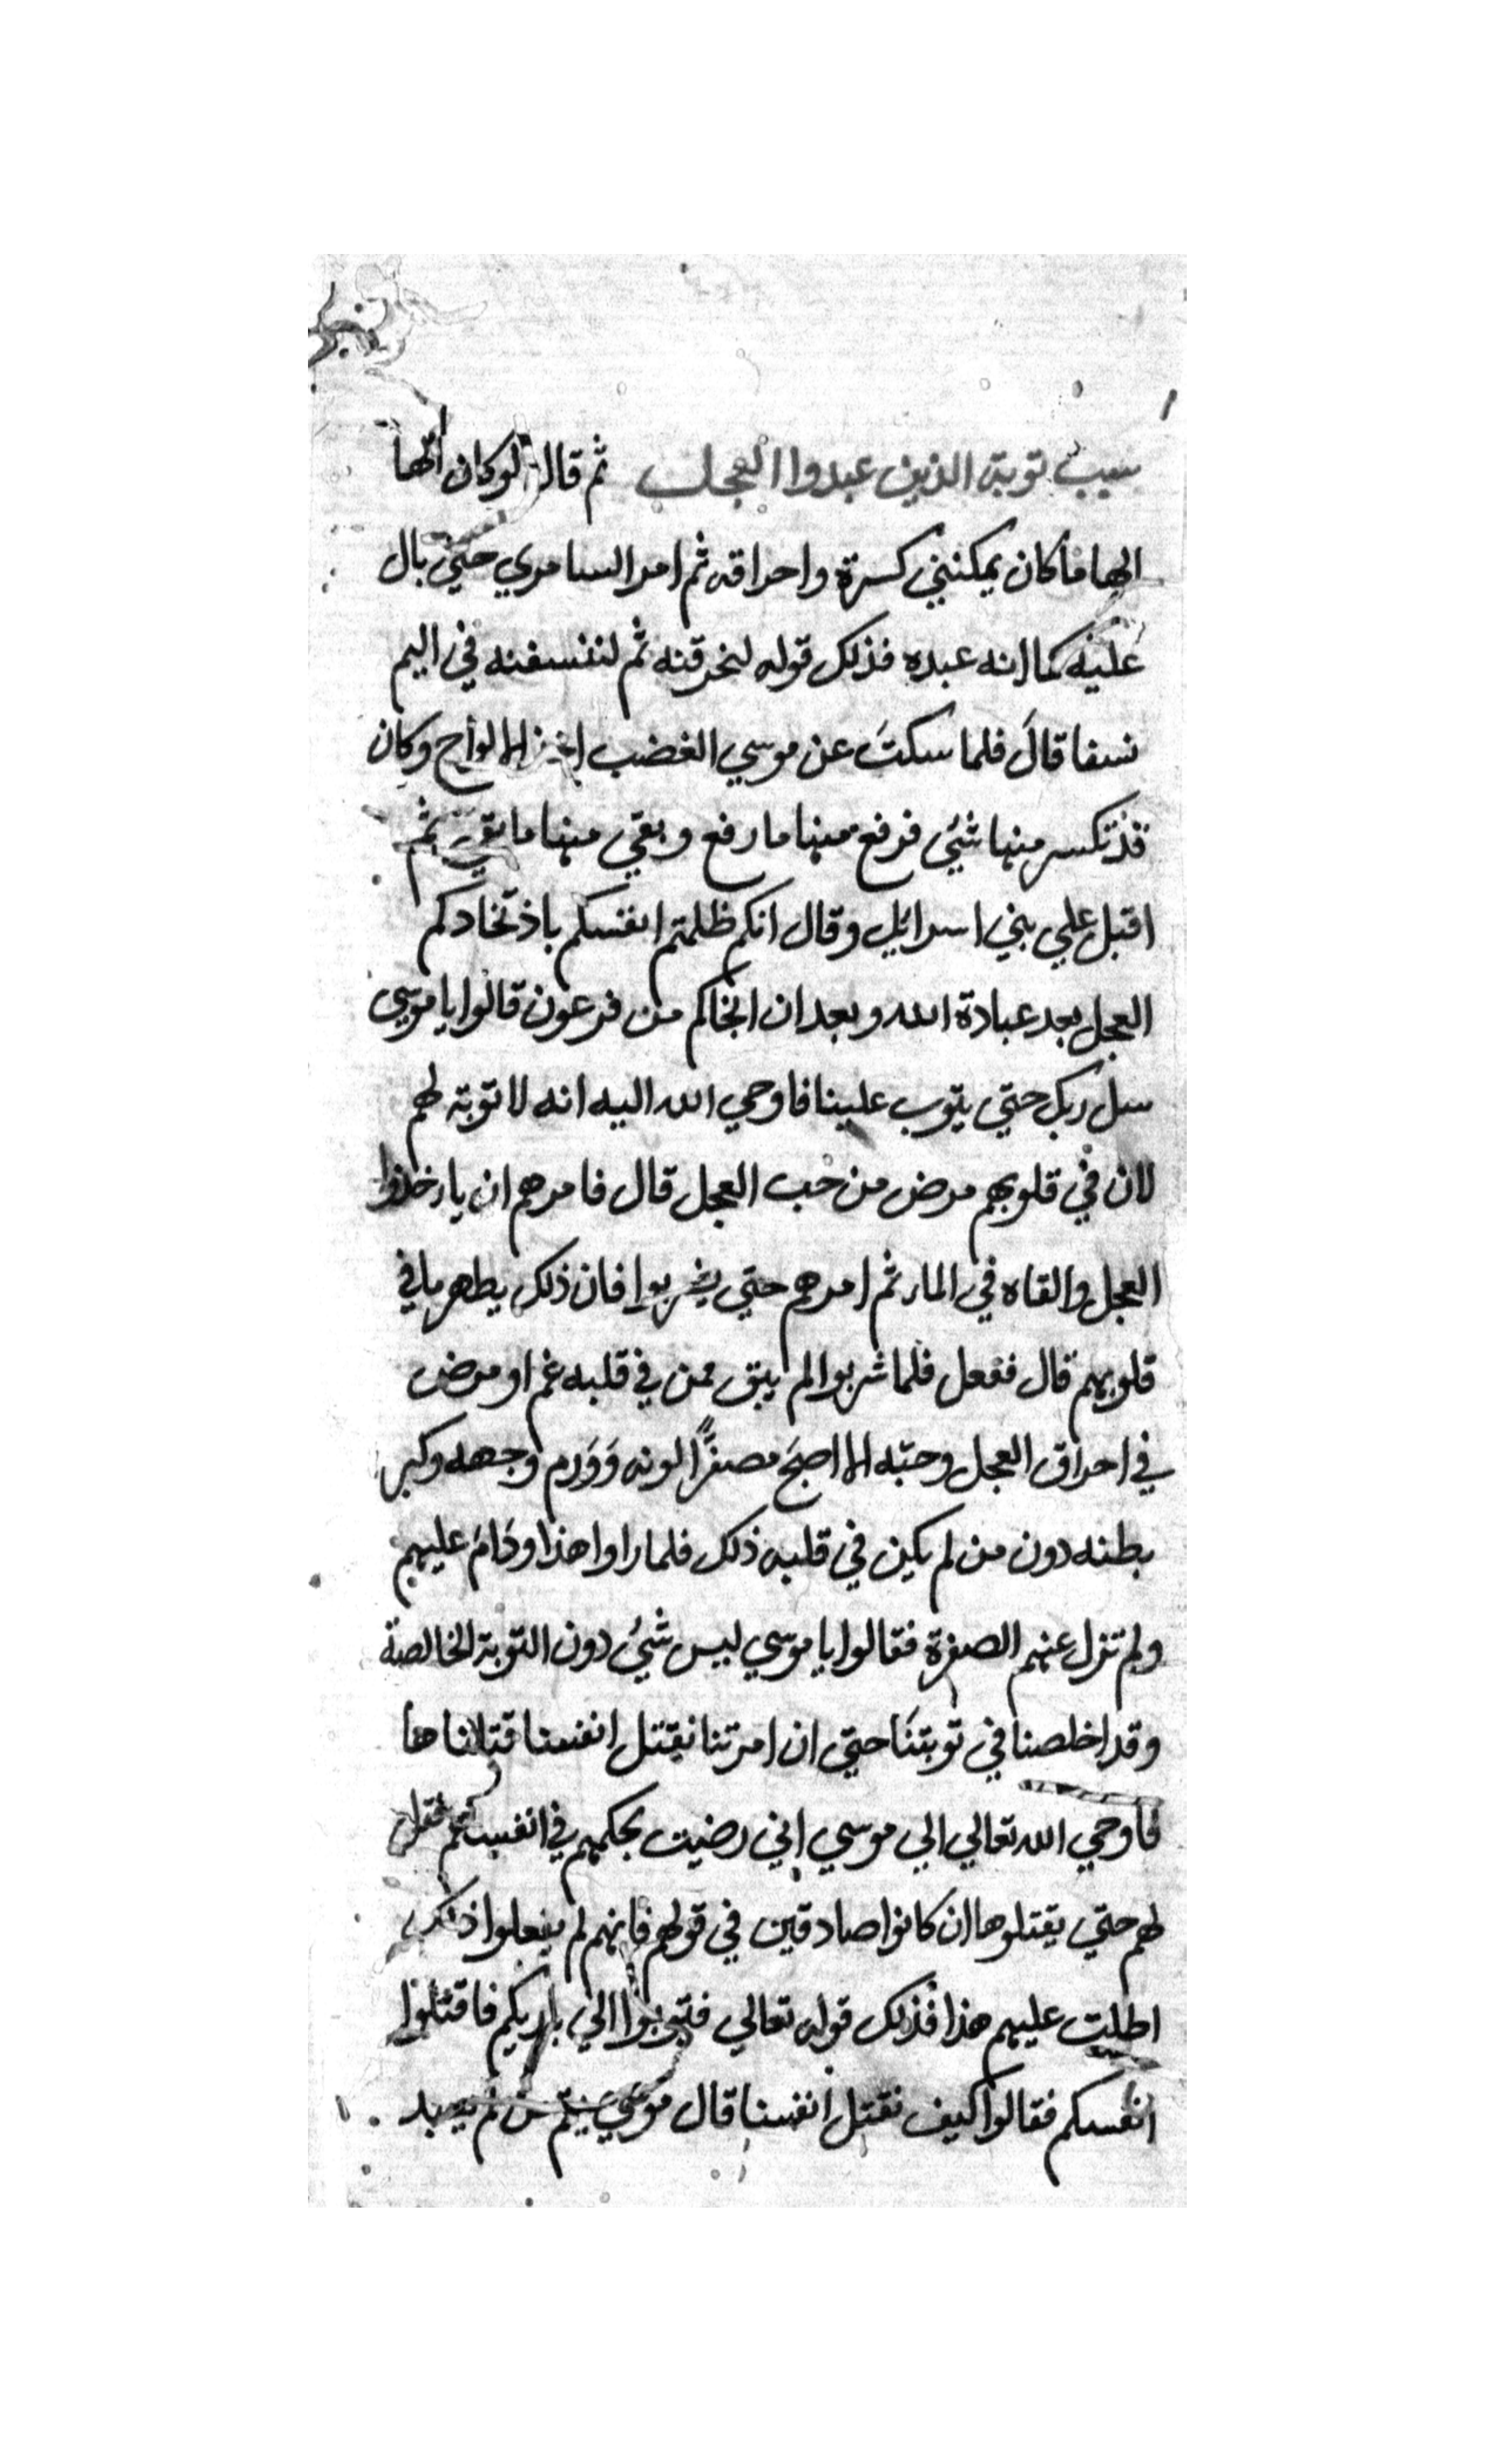 سبب توبة الذين عبدوا العجل ثم قال لو كان الها
الها ما كان يمكنني كسرة واحراقه ثم امر السامري حتي بال
عليه كما انه عبده فذلك قوله لنحرقنه ثم لننسفنه في اليم
نسفا قال فلما سكتَ عن موسي الغضب اخذ الالواح وكان
قد تكسر منها شيُ فرفع منها ما رفع وبقي منها ما بقي ثم
اقبل علي بني اسرائيل وقال انكم ظلمتم انفسكم باذتخادكم
العجل بعد عبادة الله وبعد ان انجاكم من فرعون قالوا يا موسي
سل ربك حتي يتوب علينا فاوحي الله اليه انه لا توبة لهم
لان في قلوبهم مرض من حب العجل قال فامرهم ان
العجل والقاه في الماء ثم امرهم حتي يشربوا فان ذلك يطهر ما في
قلوبهم قال ففعل فلما شربوا لم يبق ممن في قلبه غم او مرض
في احراق العجل وحبّه الا اصبحَ مصفرًّا لونه وَوَرم وجهه وكبر
بطنه دون من لم يكن في قلبه ذلك فلما راوا هذا ودَامَ عليهم
ولم تزل عنهم الصفرة فقالوا يا موسي ليس شيُ دون التوبة الخالصة
وقد اخلصنا في توبتنَا حتي ان امرتنا نقتل انفسنا قتلاناها
فاوحي الله تعالي الي موسي اني رضيت بحكمهم في انفسهم فقل
لهم حتي يقتلوها ان كانوا صادقين في قولهم فانهم لم يفعلوا ذلك
اطلت عليهم هذا فذلك قوله تعالي فتوبوا الي باريكم فاقتلوا
انفسكم فقالوا كيف نقتل انفسنا قال موسي من لم يعبد